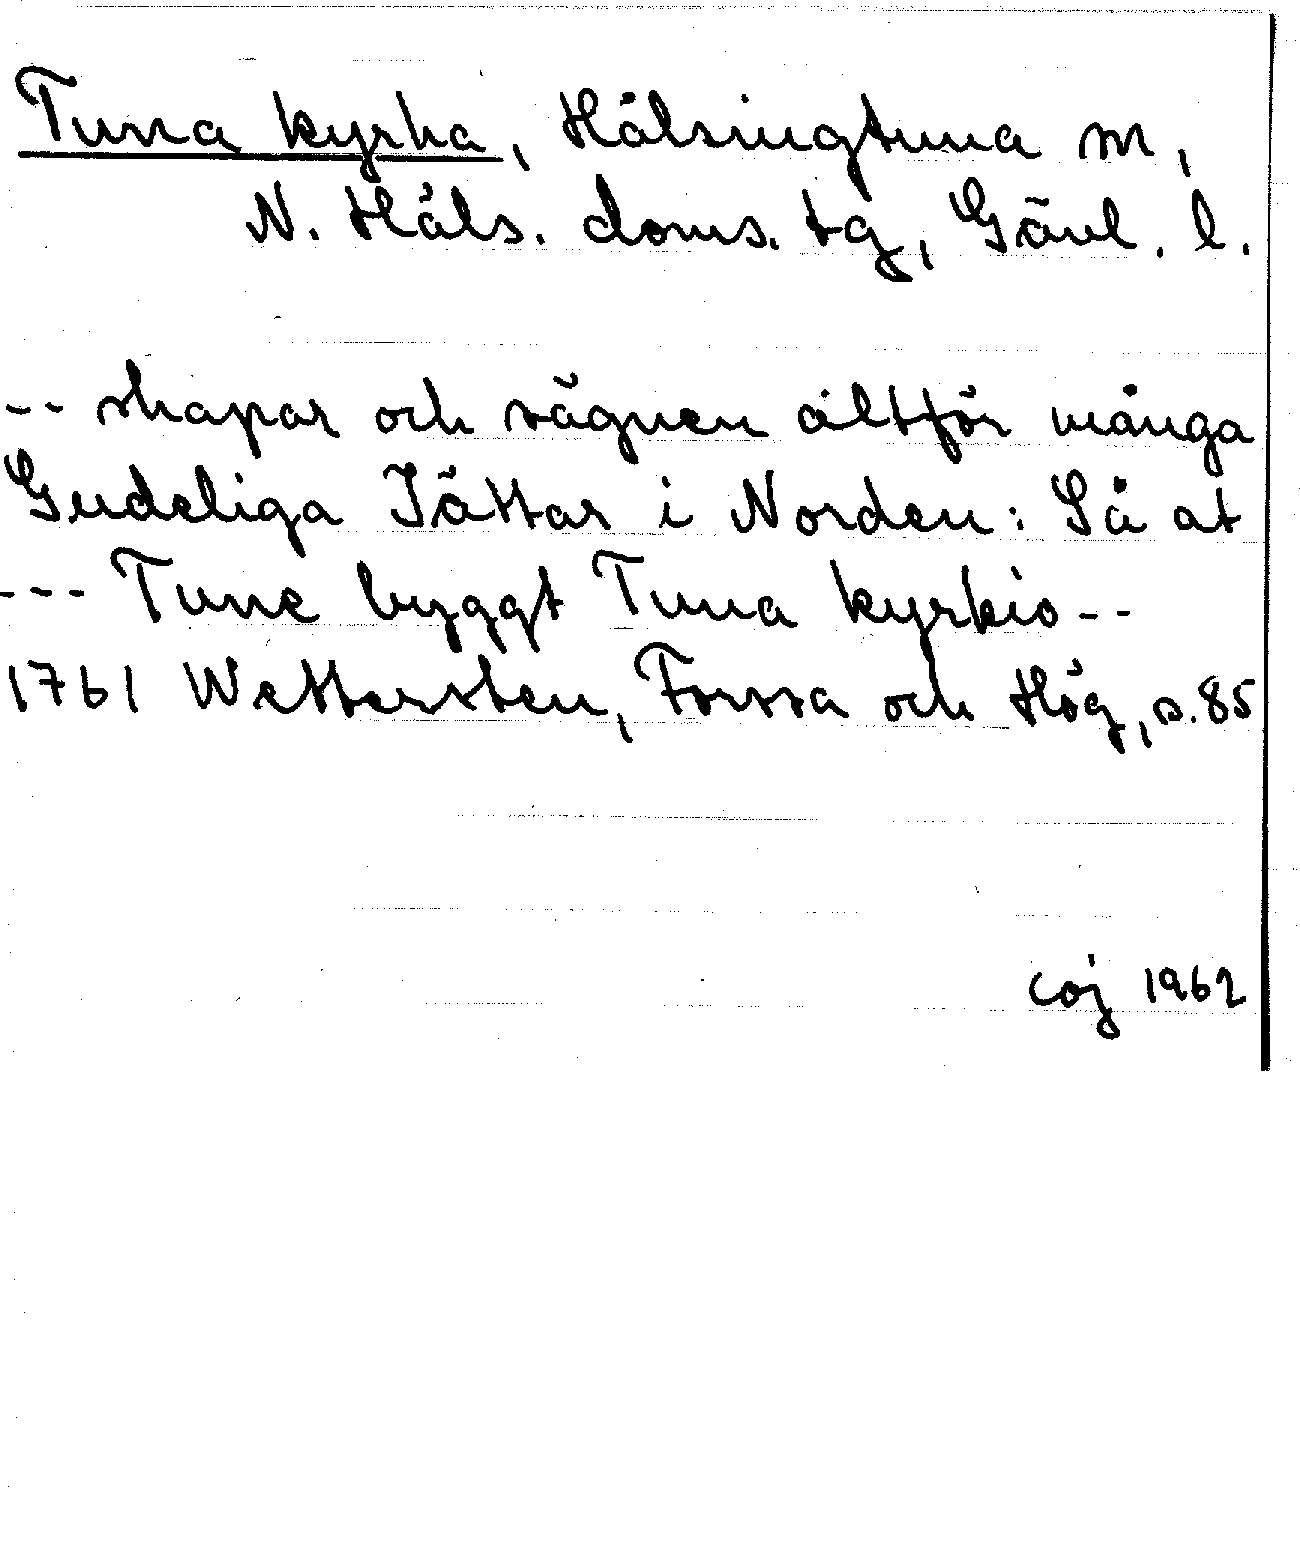 Tuna kyrka, Hälsingtuna sn,
N. Häls. doms. tg, Gävl. l.
-- skapar och sägnen altför många
Gudeliga Jättar i Norden: Så at
--- Tune byggt Tuna kyrkio --
1761 Wettersten, Forssa och Hög, s. 85
coj 1962